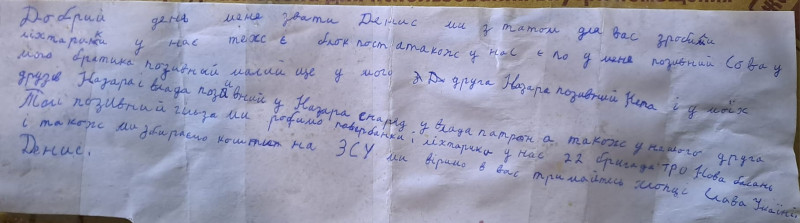 Добрий день мене звати Денис ми з татом для вас зробили
ліхтарики у нас теж є блокпост а також у нас є по у мене позивний Сова у
мого братика позивний малий ще у мого друга Назара позивний Кепа і у моїх
друзів Назара і влада позивний у Назара снаряд у влада патрон а також у нашого друга
Толі позивний гільза ми робимо повербанки і ліхтарики у нас 22 бригада ТРО Нова
і також ми збираємо кошти на ЗСУ ми віримо в вас тримайтесь хлопці Слава Україні
Денис.